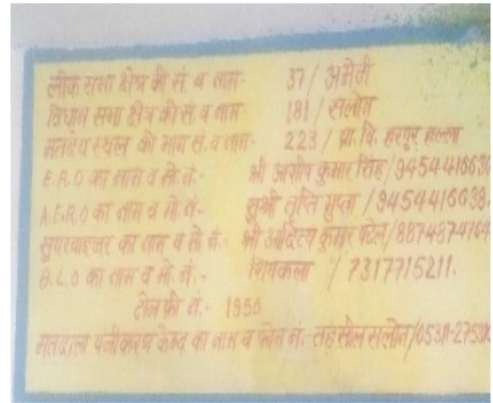 लोक सभा क्षेत्र की सं. व नाम- 37 / अमेठी
विधान सभा क्षेत्र की स. व नाम- 181 / सलोन
मतदेय स्थल की भाग सं. व नाम- 223 / प्रा. वि. हरपुर हल्ला
E.R.O का नाम व मो. नं.- श्री आशीष कुमार सिंह / 9454416636
A.E.R.O का नाम व मो. नं.- सुश्री तृप्ति गुप्ता / 9454416639.
सुपरवाइजर का नाम व मो. नं.- श्री आदित्य कुमार पटेल / 8874874164
B.L.O का नाम व मो. नं.- शिवकला / 7317715211.
टोल फ्री नं.- 1950
मतदाता पंजीकरण केन्द्र का नाम व फोन नं. तहसील सलोन /